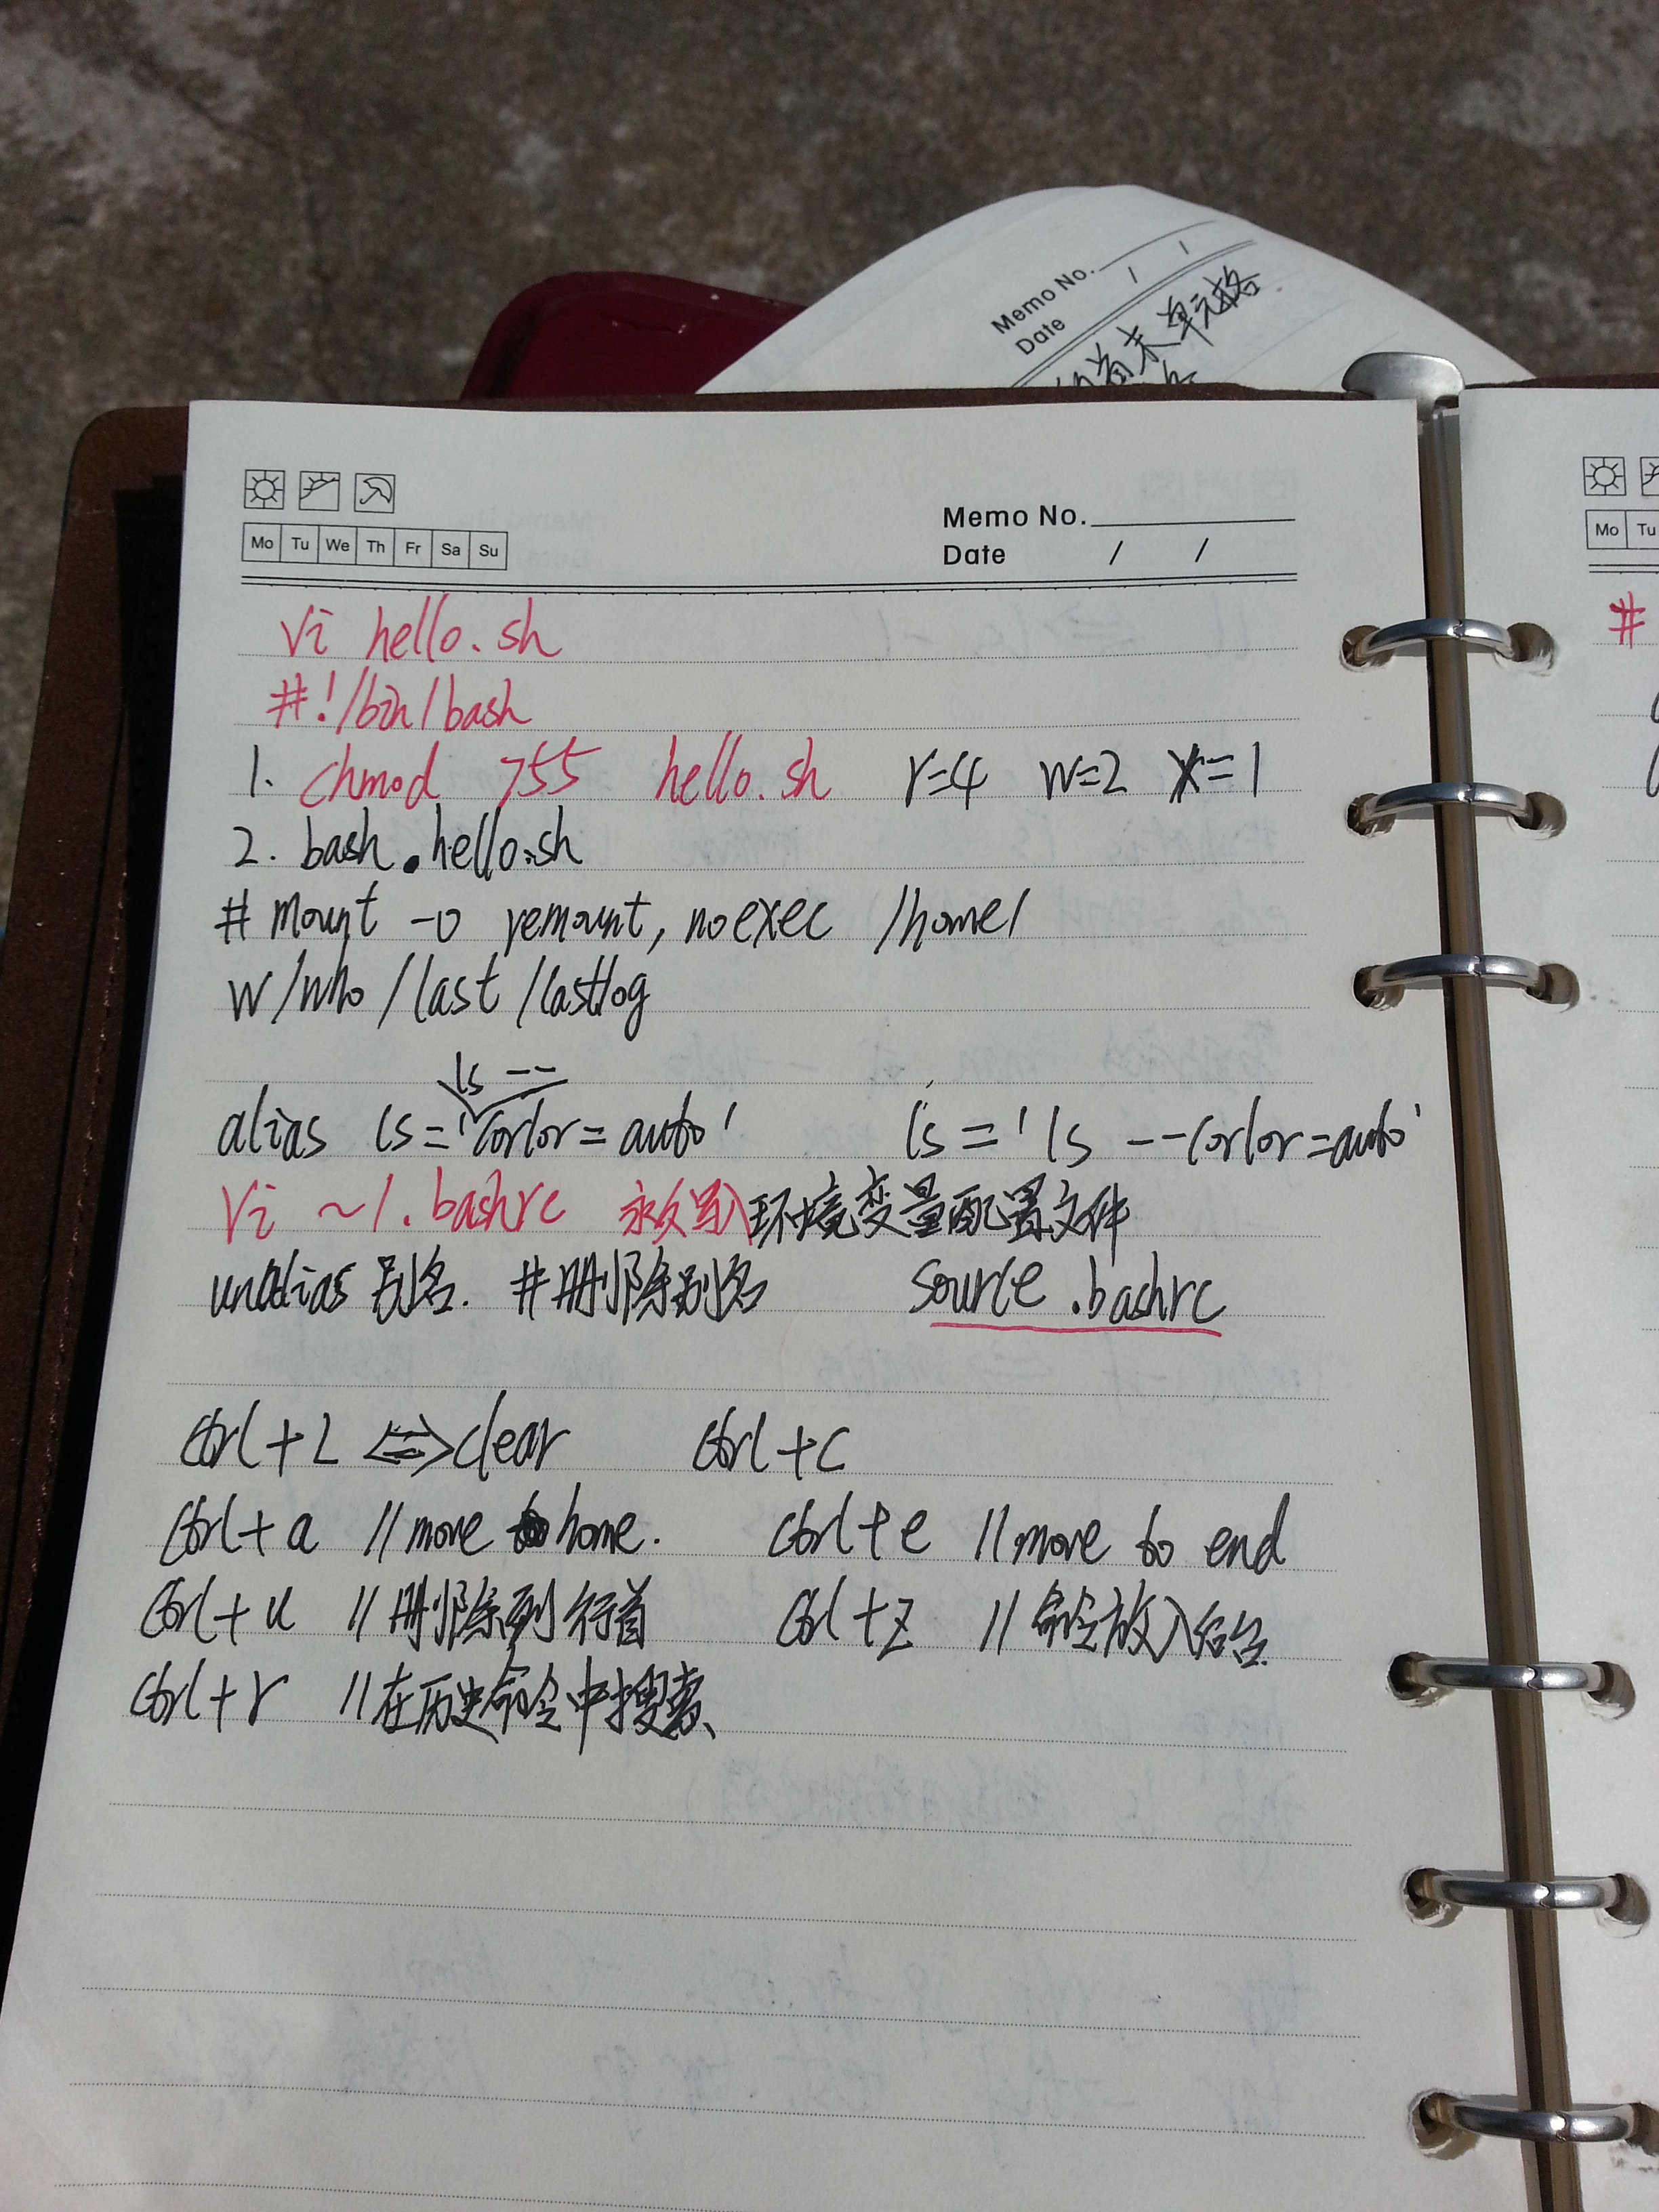 Memo No.
Date / /
首末单元格
Mo Tu We Th Fr Sa Su
Memo No.
Date / /
Mo Tu
vi hello.sh
#!/bin/bash
1. chmod 755 hello.sh r=4 w=2 x=1
2. bash hello.sh
# mount -o remount, noexec /home/
w/who/last/lastlog
ls --
alias ls='corlor=auto' ls='ls --corlor=auto'
vi ~/.bashrc 永久写入环境变量配置文件
unalias 别名. #删除别名 source .bashrc
ctrl+L <=> clear ctrl+c
ctrl+a //move home. ctrl+e //move to end
ctrl+u //删除到行首 ctrl+z //命令放入后台
ctrl+r //在历史命令中搜索
#